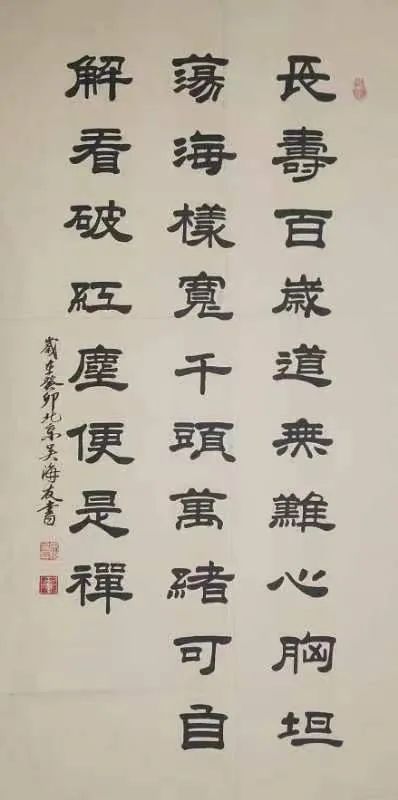 長壽百歲道無難心胸坦
蕩海樣寬千頭萬緒可自
解看破紅塵便是禪
歲在癸卯北京吴海友書